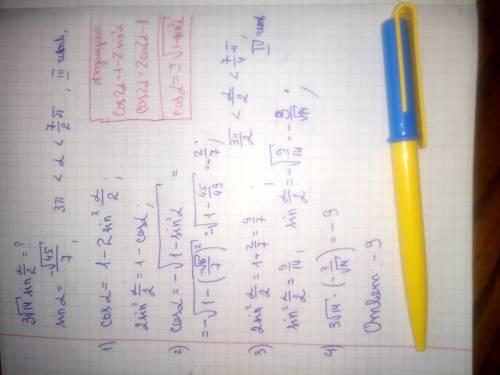 3√14 sin α/2 = ?
sin α = -√45/7, 3π < α < 7/2 π, III четв.
формулы
cos2α = 1 - 2sin²α
cos2α = 2cos²α - 1
cosα = ±√1-sin²α
1) cosα = 1 - 2 sin² α/2;
2sin² α/2 = 1 - cosα;
2) cosα = -√1-sin²α =
= -√1-(-√45/7)² = -√1-45/49 = -2/7;
3π/2 < α/2 < 7/4 π
IV четв
3) 2sin² α/2 = 1 + 2/7 = 9/7;
sin² α/2 = 9/14; sin α/2 = -√9/14 = -3/√14;
4) 3√14 · (-3/√14) = -9
Ответ: -9